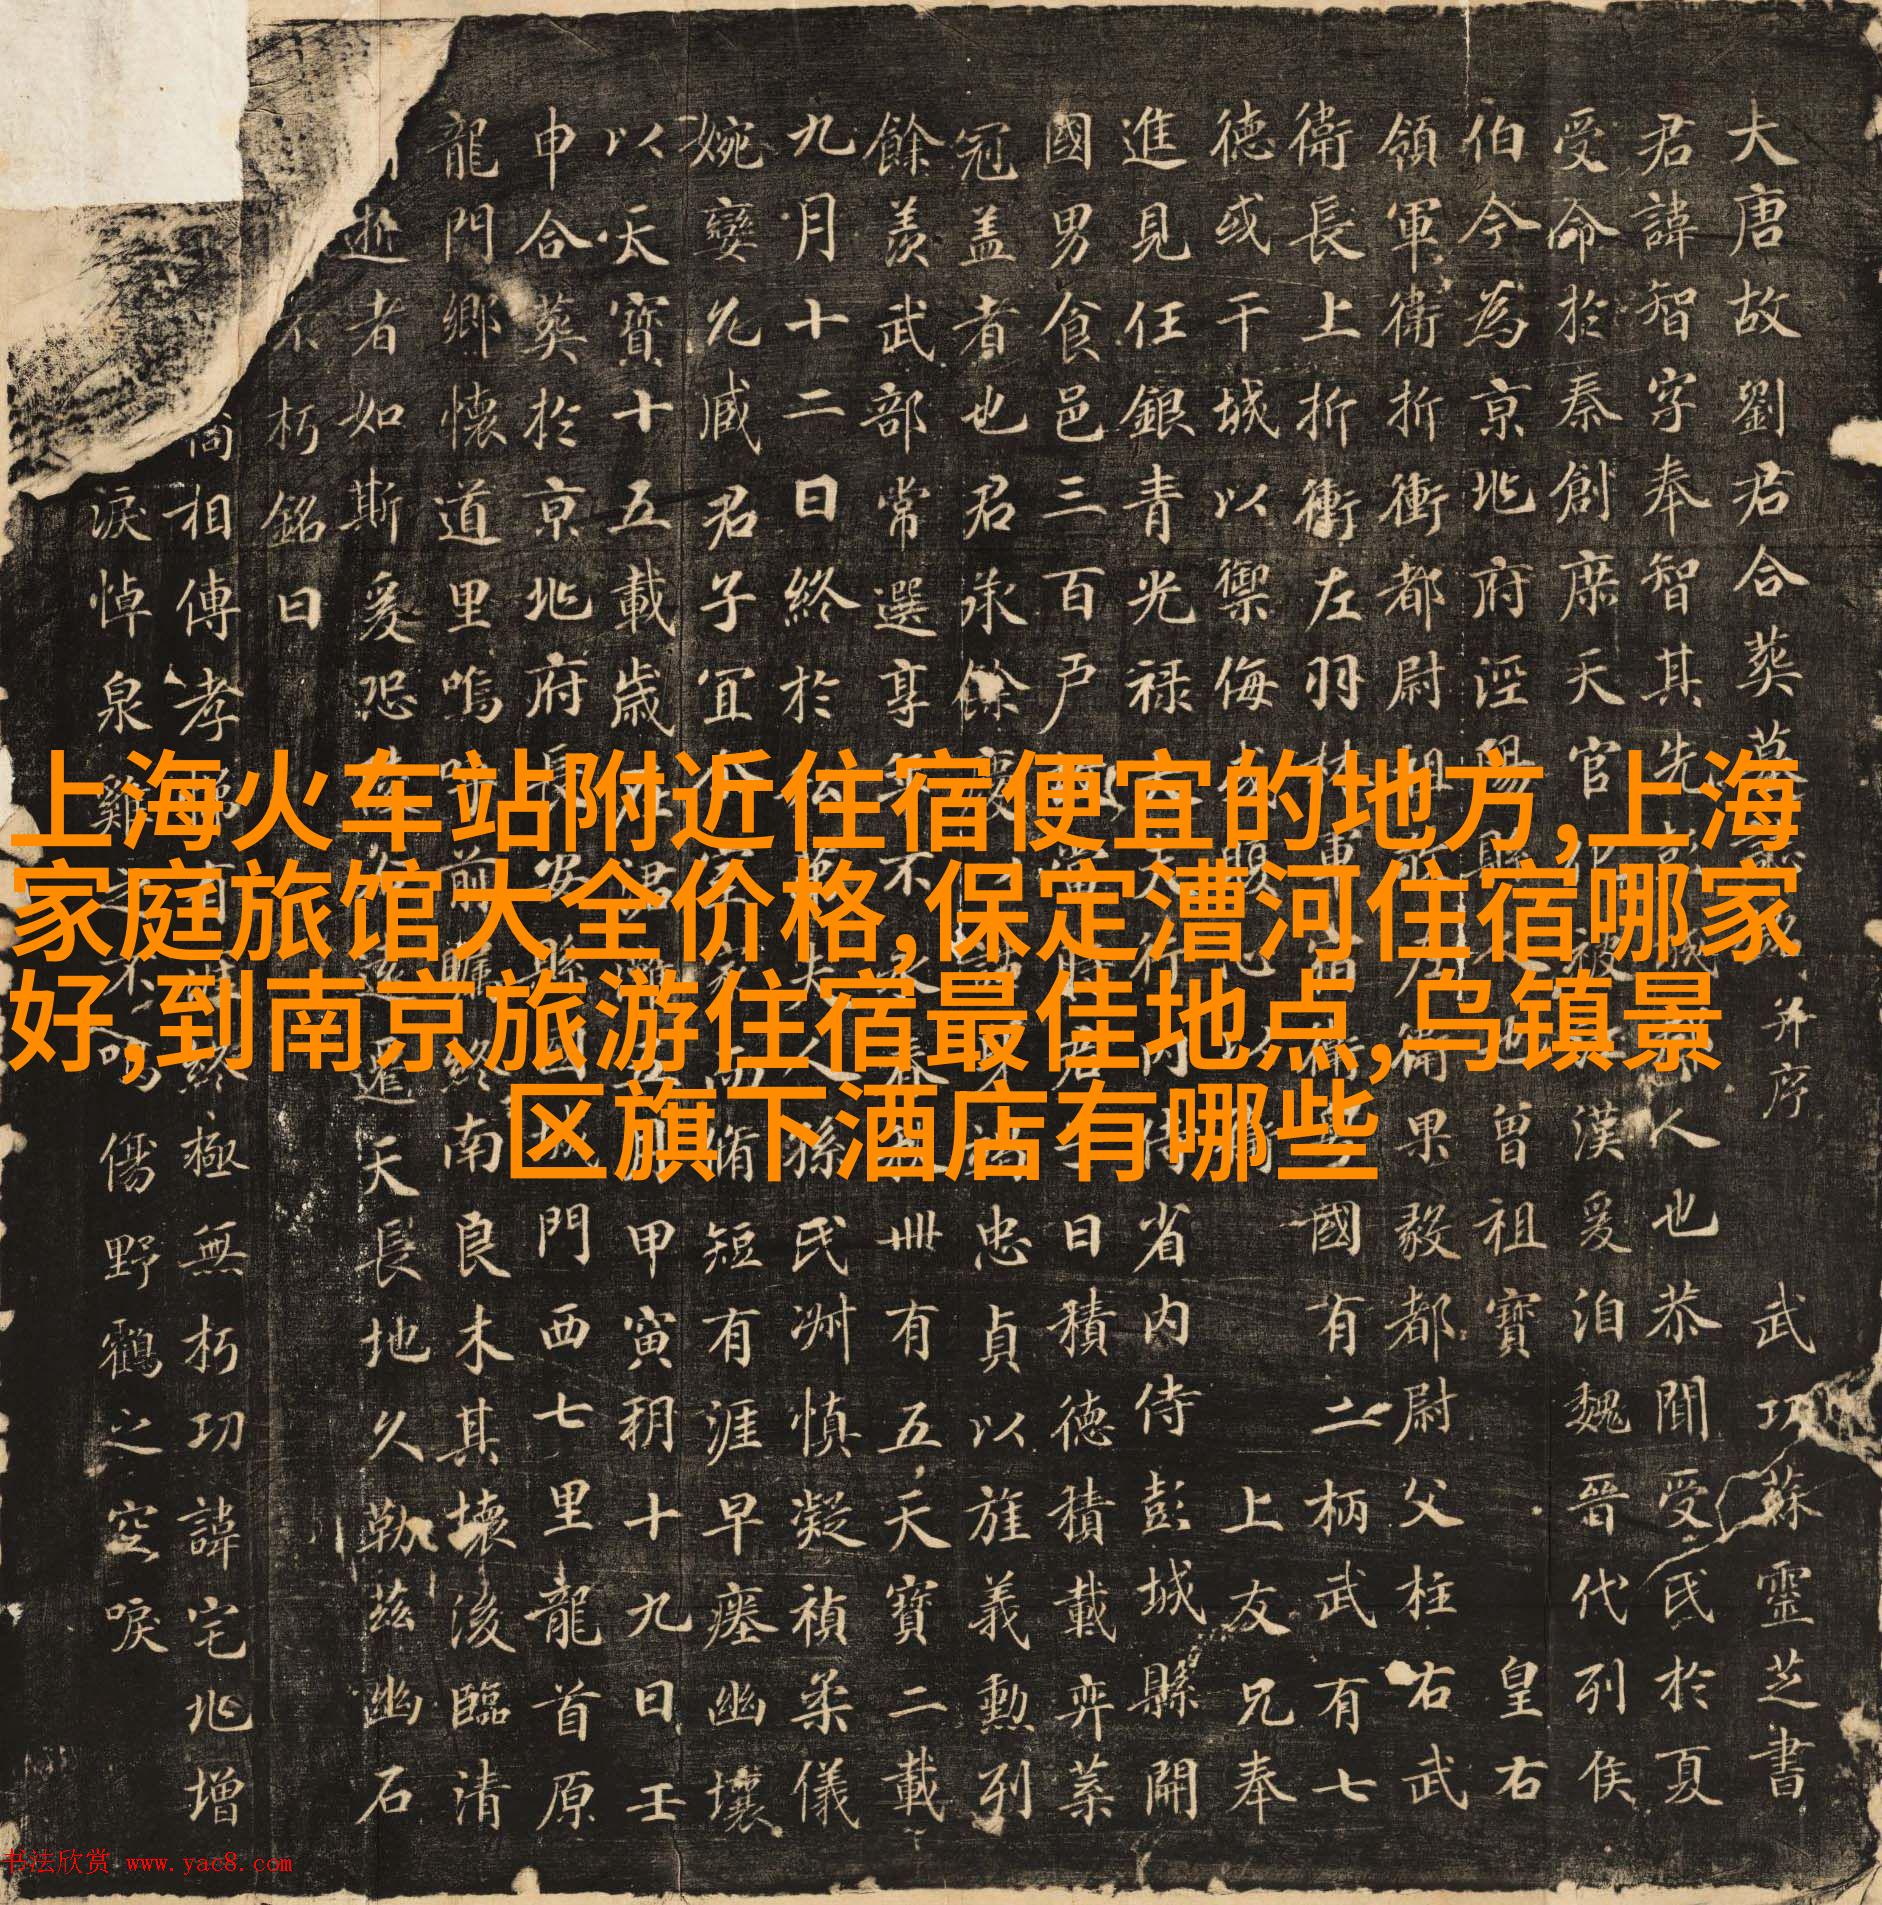 大唐故劉君合葬墓誌 并序 武功蘇靈芝書
君諱智字奉智其先 人也恭聞受氏於夏
受命於秦創庶天官 漢爰洎魏晉代列侯
伯今為京兆府涇陽縣 曾祖寶 皇右
領軍衛折衝都尉祖 果毅都尉父柱右武
衛長上折衝左羽林軍 國有二柄武有七
德或干城以禦侮 上友兄奉
進見任銀青光禄大夫行內侍省内侍彭城縣開
國男食邑三百戶 日積德積載弈葉
冠盖者也君承餘 忠貞以旌義勳列
餘羨武部常選享年不 卌有五天寶二載
九月十二日終於 夫人孫氏淋慎凝禎柔儀
婉孌允臧君子宜 脩短有涯早瘞幽壤
以天寶十五載歲 甲寅玥十九日壬
申合葬於京兆府長安縣國城門西七里龍首原
龍門鄉懷道里嗚 前 終南良木其壞後臨清
逝者如斯爰恐 天長地久勒茲幽石
不朽銘曰
相傳孝 極無朽功諱宅兆增
淚悼泉 傷野鶴之空唳
上海火车站附近住宿便宜的地方,上海
家庭旅馆大全价格,保定漕河住宿哪家
好,到南京旅游住宿最佳地点,乌镇景
区旗下酒店有哪些
书法欣赏 www.yac8.com